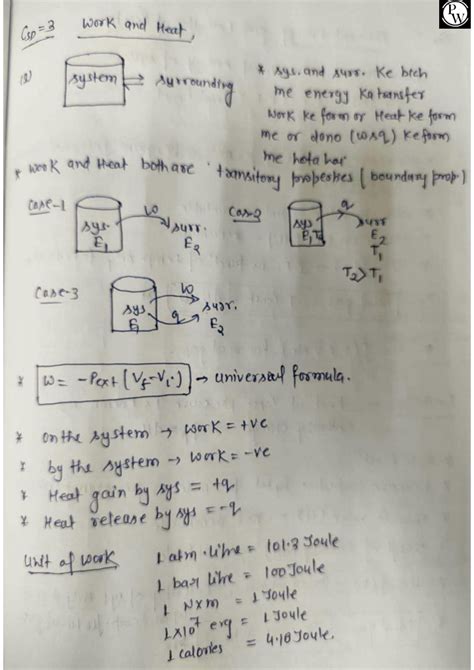 PW
Csp=3 Work and Heat,
(2) system surrounding
* sys. and surr. Ke bich
me energy Ka transfer
work ke form or Heat ke form
me or dono (w & q) ke form
me hota hai
* work and Heat both are transitory properties (boundary prop.)
Case-1 sys. E1 w surr. E2
Case-2 sys E1 T2 q surr E2 T1
T2 > T1
Case-3 sys E1 w q surr. E2
* W = -Pext (Vf - Vi) → universal formula.
* on the system → work = +ve
* by the system → work = -ve
* Heat gain by sys = +q
* Heat release by sys = -q
unit of work
1 atm. litre = 101.3 Joule
1 bar litre = 100 Joule
1 N×m = 1 Joule
1×10⁷ erg = 1 Joule
1 calories = 4.18 Joule.